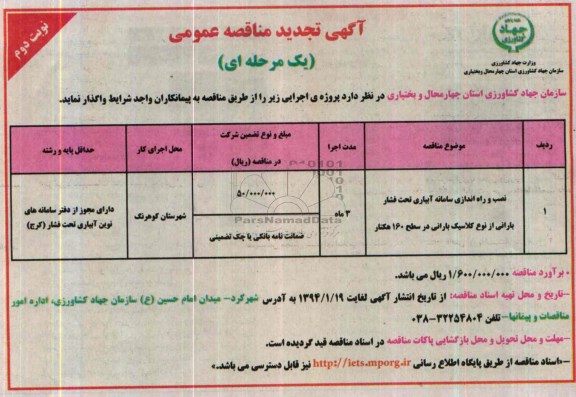 نوبت دوم
جهاد کشاورزی
وزارت جهاد کشاورزی
سازمان جهاد کشاورزی استان چهارمحال وبختیاری
آگهی تجدید مناقصه عمومی
(یک مرحله ای)
سازمان جهاد کشاورزی استان چهارمحال و بختیاری در نظر دارد پروژه ی اجرایی زیر را از طریق مناقصه به پیمانکاران واجد شرایط واگذار نماید.
ردیف
موضوع مناقصه
مدت اجرا
مبلغ و نوع تضمین شرکت
در مناقصه (ریال)
محل اجرای کار
حداقل پایه و رشته
۱
نصب و راه اندازی سامانه آبیاری تحت فشار
بارانی از نوع کلاسیک بارانی در سطح ۱۶۰ هکتار
۳ ماه
۵۰/۰۰۰/۰۰۰
ضمانت نامه بانکی یا چک تضمینی
شهرستان کوهرنگ
دارای مجوز از دفتر سامانه های
نوین آبیاری تحت فشار (کرج)
ParsNamadData
• برآورد مناقصه ۱/۶۰۰/۰۰۰/۰۰۰ ریال می باشد.
-تاریخ و محل تهیه اسناد مناقصه: از تاریخ انتشار آگهی لغایت ۱۳۹۴/۱/۱۹ به آدرس شهرکرد- میدان امام حسین (ع) سازمان جهاد کشاورزی، اداره امور
مناقصات و پیمانها-تلفن ۳۲۲۵۴۸۰۴-۰۳۸
-مهلت و محل تحویل و محل بازگشایی پاکات مناقصه در اسناد مناقصه قید گردیده است.
-«اسناد مناقصه از طریق پایگاه اطلاع رسانی http://iets.mporg.ir نیز قابل دسترسی می باشد.»